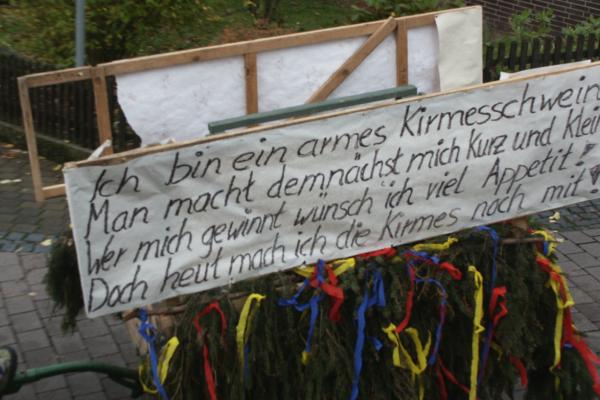 Ich bin ein armes Kirmesschwein
Man macht demnächst mich kurz und klein
Wer mich gewinnt wünsch ich viel Appetit!
Doch heut mach ich die Kirmes noch mit!